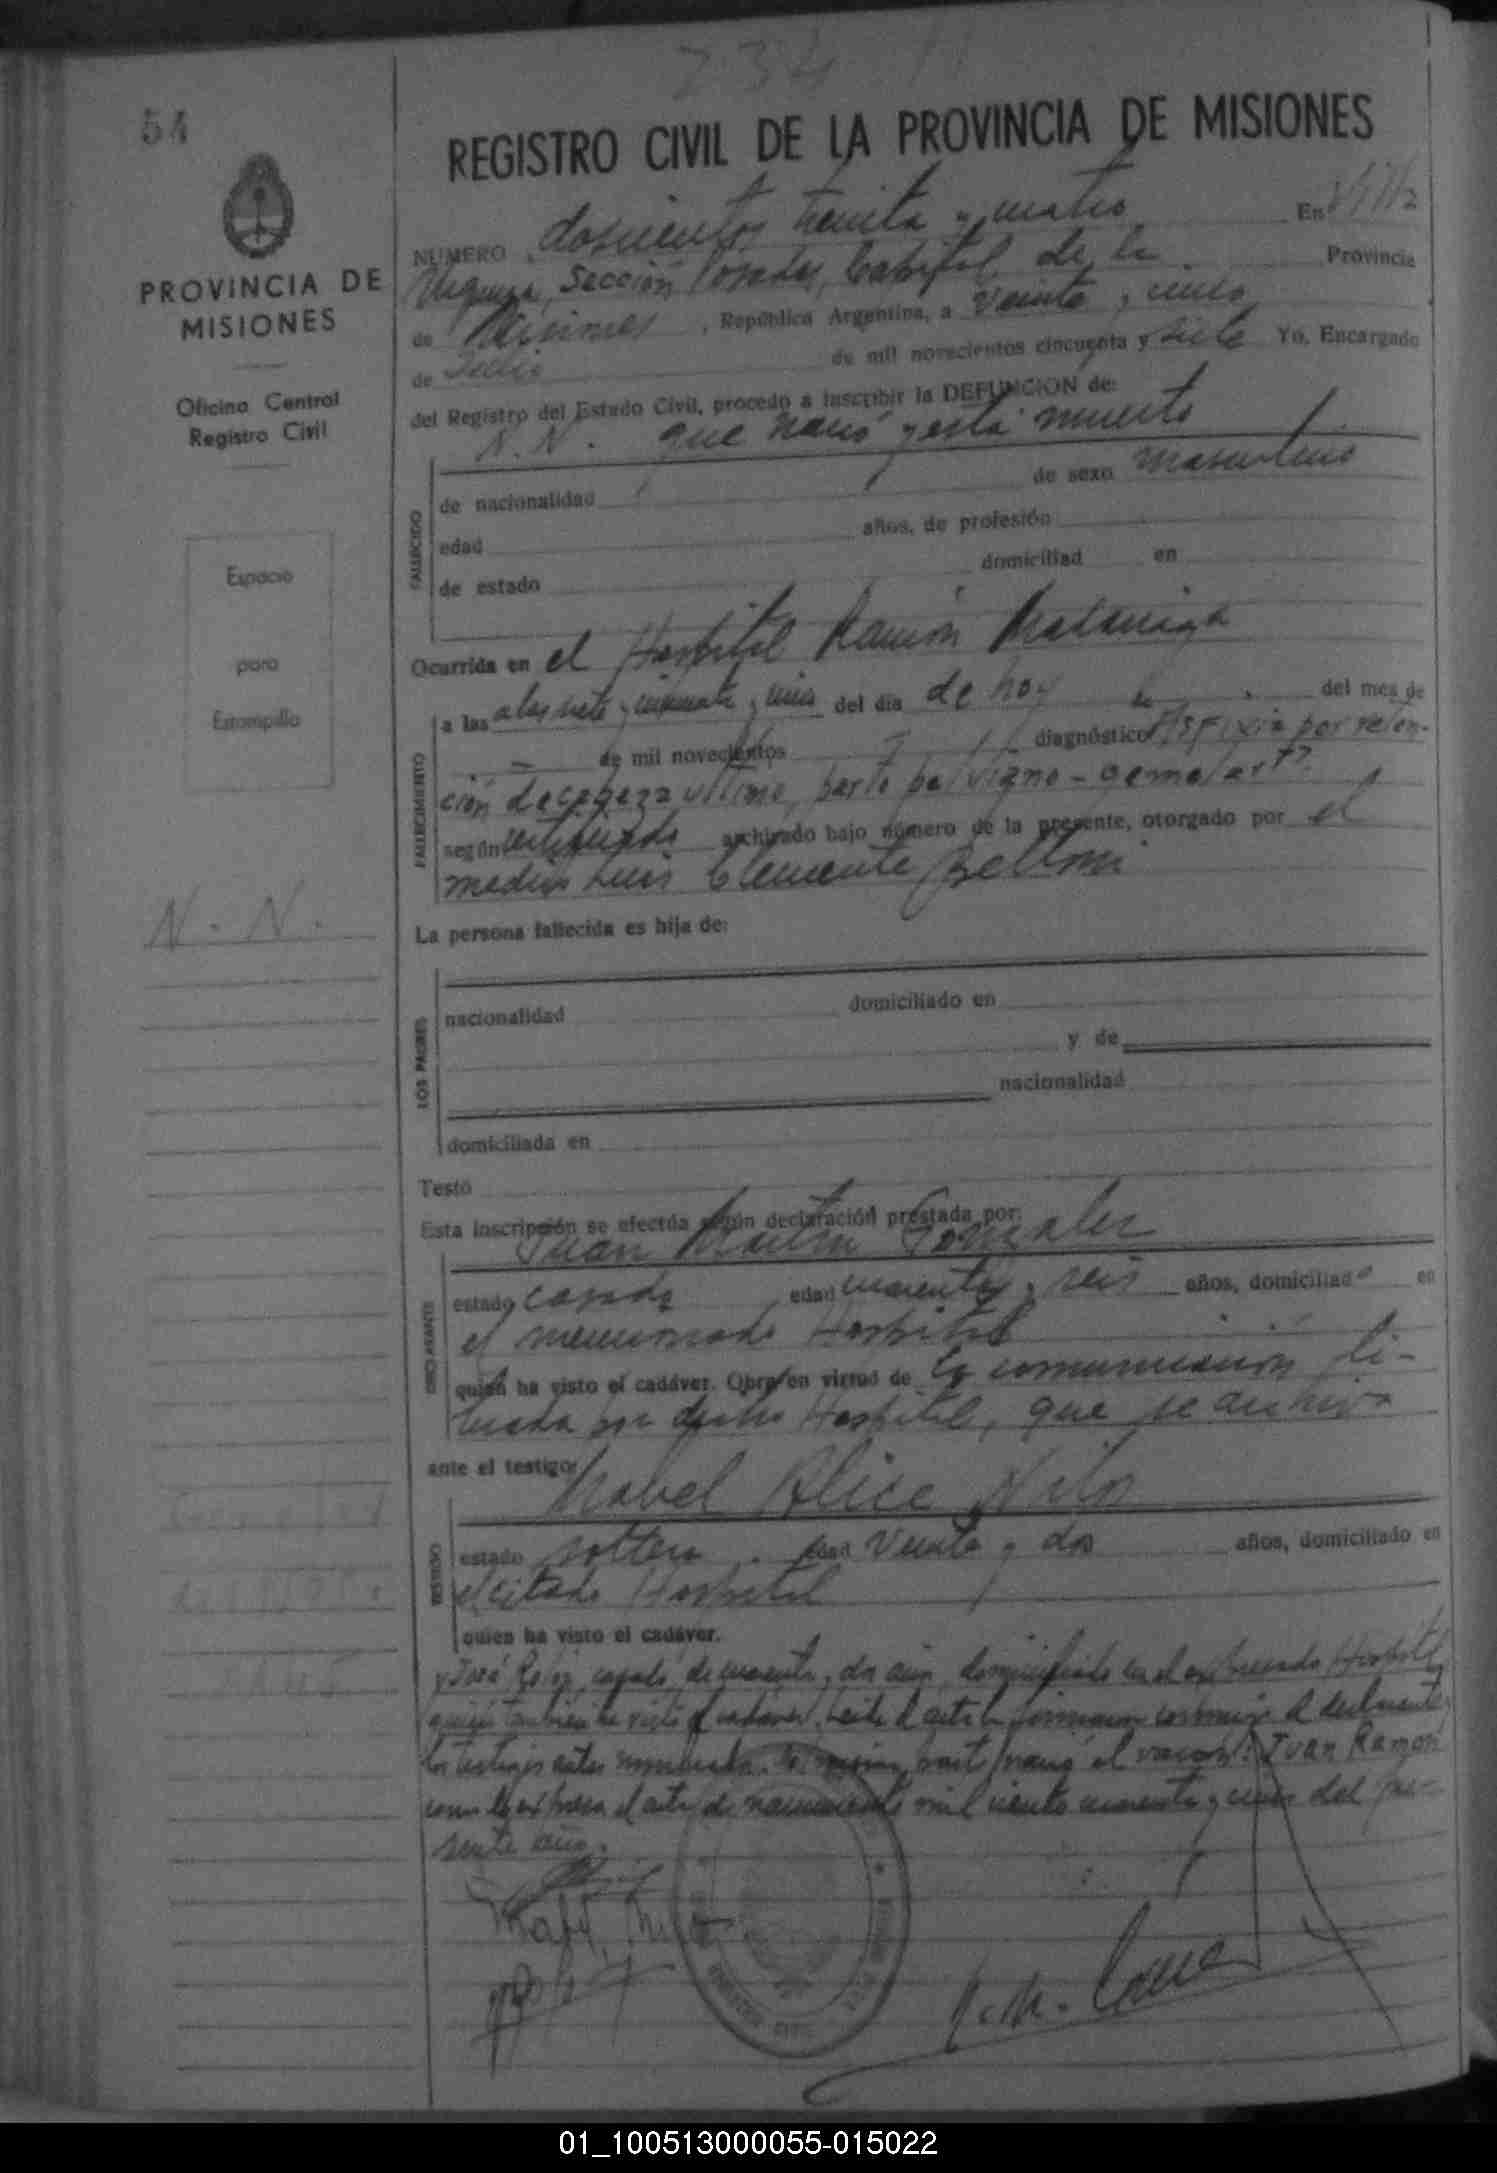 234
54
REGISTRO CIVIL DE LA PROVINCIA DE MISIONES
PROVINCIA DE
MISIONES
Oficina Central
Registro Civil
Espacio
para
Estampilla
N. N.
NUMERO doscientos treinta y cuatro En Villa
Urquiza, Sección Posadas, Capital de la Provincia
de Misiones, República Argentina, a veinte y cinco
de Julio de mil novecientos cincuenta y siete Yo, Encargado
del Registro del Estado Civil, procedo a inscribir la DEFUNCION de:
N. N. que nació y está muerto
FALLECIDO
de nacionalidad de sexo masculino
edad años, de profesión
de estado domiciliad en
Ocurrida en el Hospital Ramón Madariaga
FALLECIMIENTO
a las a las siete y cincuenta y cinco del dia de hoy del mes de
de mil novecientos diagnóstico Asfixia por reten-
ción de cabeza ultima, parto pelviano - gemelar
según certificado archivado bajo número de la presente, otorgado por el
medico Luis Clemente Belloni
La persona fallecida es hija de:
LOS PADRES
nacionalidad domiciliado en
y de
nacionalidad
domiciliada en
Testó
Esta inscripción se efectúa según declaración prestada por:
Juan Martin Gonzalez
estado casado edad cuarenta y seis años, domiciliado en
el mencionado Hospital
quien ha visto el cadáver. Obra en virtud de la comunicación
por dicho Hospital, que se archiva
ante el testigo:
Mabel Alice Nilo
TESTIGO
estado soltera edad veinte y dos años, domiciliado en
el citado Hospital
quien ha visto el cadáver.
y José casado, de cuarenta y dos años, domiciliado en el expresado Hospital
quien tambien ha visto el cadaver. Leida el acta la firmaron conmigo el declarante
los testigos antes nombrados. nació el varon: Juan Ramon
como lo expresa el acta de nacimiento mil ciento cuarenta y cinco del pre-
sente año.
01_100513000055-015022